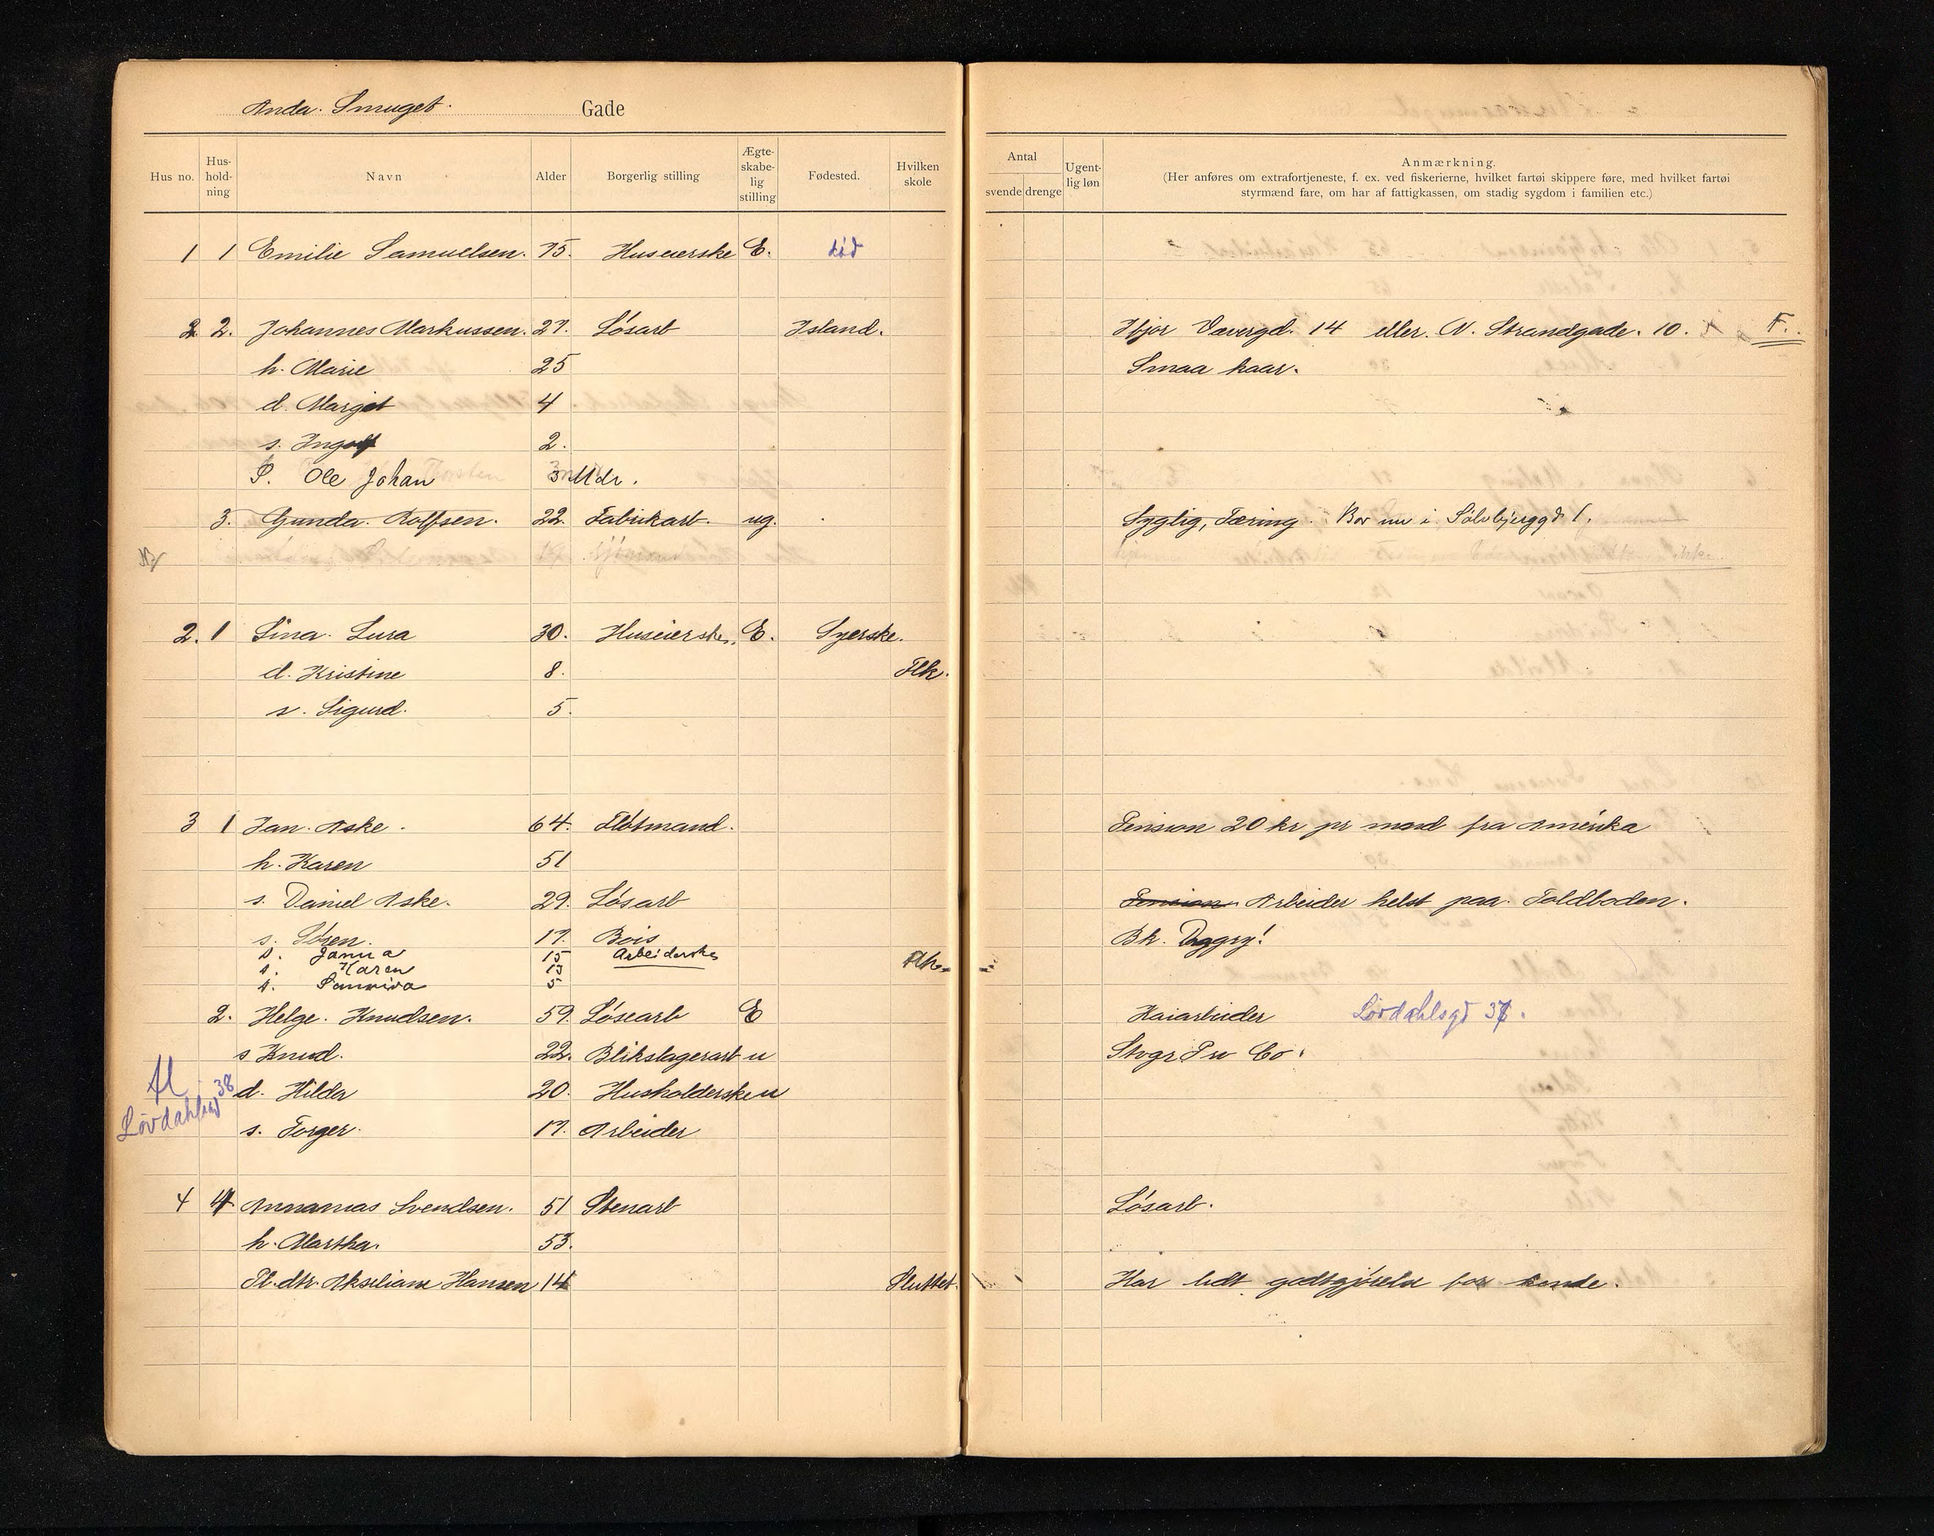 Anda. Smuget. Gade
Hus no. Hus-hold-ning Navn Alder Borgerlig stilling Ægte-skabe-lig stilling Fødested. Hvilken skole
Antal svende drenge Ugent-lig løn Anmærkning.
(Her anføres om extrafortjeneste, f. ex. ved fiskerierne, hvilket fartøi skippere føre, med hvilket fartøi
styrmænd fare, om har af fattigkassen, om stadig sygdom i familien etc.)
1 1 Emilie Samuelsen. 75. Huseierske E. død
2 2. Johannes Markussen. 27. Løsarb Island. Hjor Vævergd. 14 eller. N. Strandgade. 10. F.
h. Marie 25 Smaa kaar.
d. Margit 4
s. Ingolf 2.
S. Ole Johan 3 Mdr.
3. Gunda. Rolfsen. 22. Fabrikarb. ug. Syglig, Tæring. Bor nu i Sølvbjerggd 1.
2. 1 Sina. Lura 30. Huseierske. E. Syerske.
d. Kristine 8. Flk.
s. Sigurd. 5.
3 1 Jan. Aske. 64. Fløtmand. Pension 20 kr pr mnd fra Amerika
h. Karen 51
s. Daniel Aske. 29. Løsarb Pension Arbeider helst paa. Toldboden.
s. Søren. 17. Bois Bk. Daggry!
d. Janna 15 Arbeiderske
d. Karen 13 Flk.
d. 5
2. Helge. Knudsen. 59. Løsearb E Kaiarbeider Løvdahlsgd 37.
s Knud. 22. Blikslagerarb u Stvgr Prv Co.
38 d. Hilda 20. Husholderske u
Løvdahlsgd s. Torger. 17. Arbeider
4 4 Annanias Svendsen. 51 Stenarb Løsarb.
h. Martha. 53.
Pl. dtr. Akseliane Hansen 14 Sluttet. Har lidt godtgjørelse for hende.